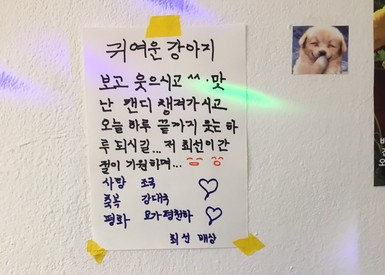 귀여운 강아지
보고 웃으시고 ^^ · 맛
난 캔디 챙겨가시고
오늘 하루 끝까지 웃는 하
루 되시길... 저 최선이 간
절이 기원하며...
사랑 조국 ♡
축복 강대국
평화 요가평천하 ♡
최선 배상